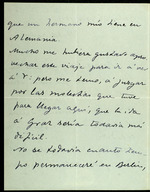 que un hermano mío tiene en
Alemania.
Mucho me hubiera gustado aprovechar
este viaje para ir a ver
a V. pero me temo, a juzgar
por las molestias que tuve
para llegar aquí, que la ida
a Graz sería todavía más
difícil.
No se todavía cuanto tiempo
permaneceré en Berlin,